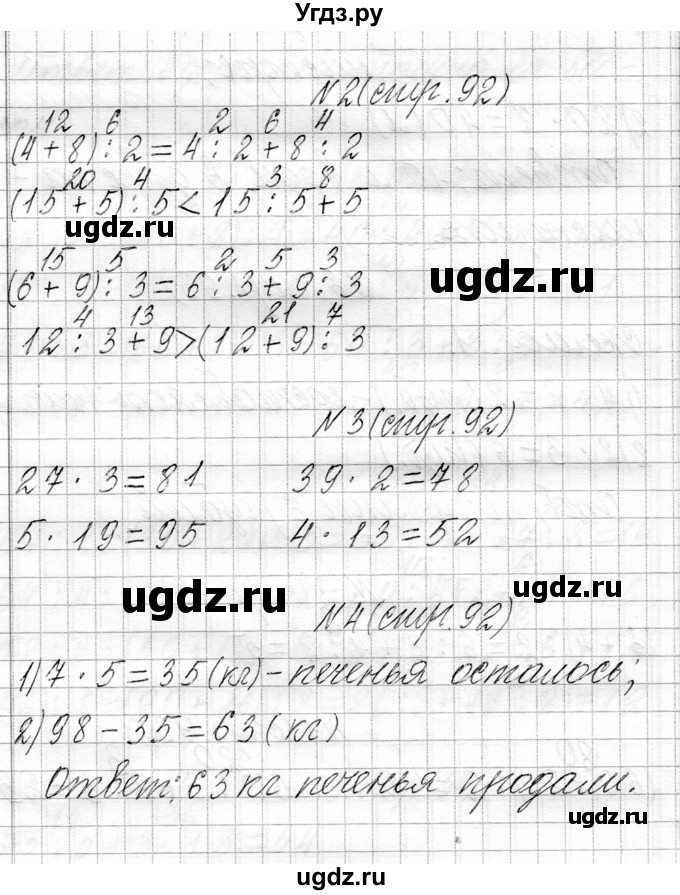 Угдз.ру
N2(стр.92)
12 6 2 6 4
(4+8):2=4:2+8:2
20 4 3 8
(15+5):5<15:5+5
ugdz.ru
15 5 2 5 3
(6+9):3=6:3+9:3
ugdz.ru
4 13 21 7
12:3+9>(12+9):3
N3(стр.92)
27·3=81 39·2=78
5·19=95 4·13=52
ugdz.ru
ugdz.ru
N4(стр.92)
1)7·5=35(кг)-печенья осталось;
2)98-35=63(кг)
Ответ: 63 кг печенья продали.
ugdz.ru
ugdz.ru